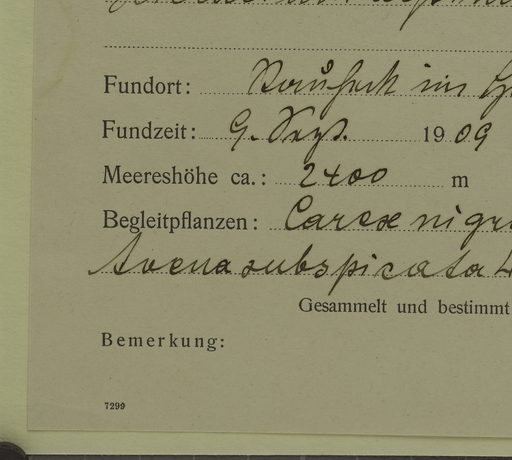 Fundort: im
Fundzeit: 9. Sept. 1909
Meereshöhe ca.: 2400 m
Begleitpflanzen: Carex nigr
Avena subspicata
Gesammelt und bestimmt
Bemerkung:
7299